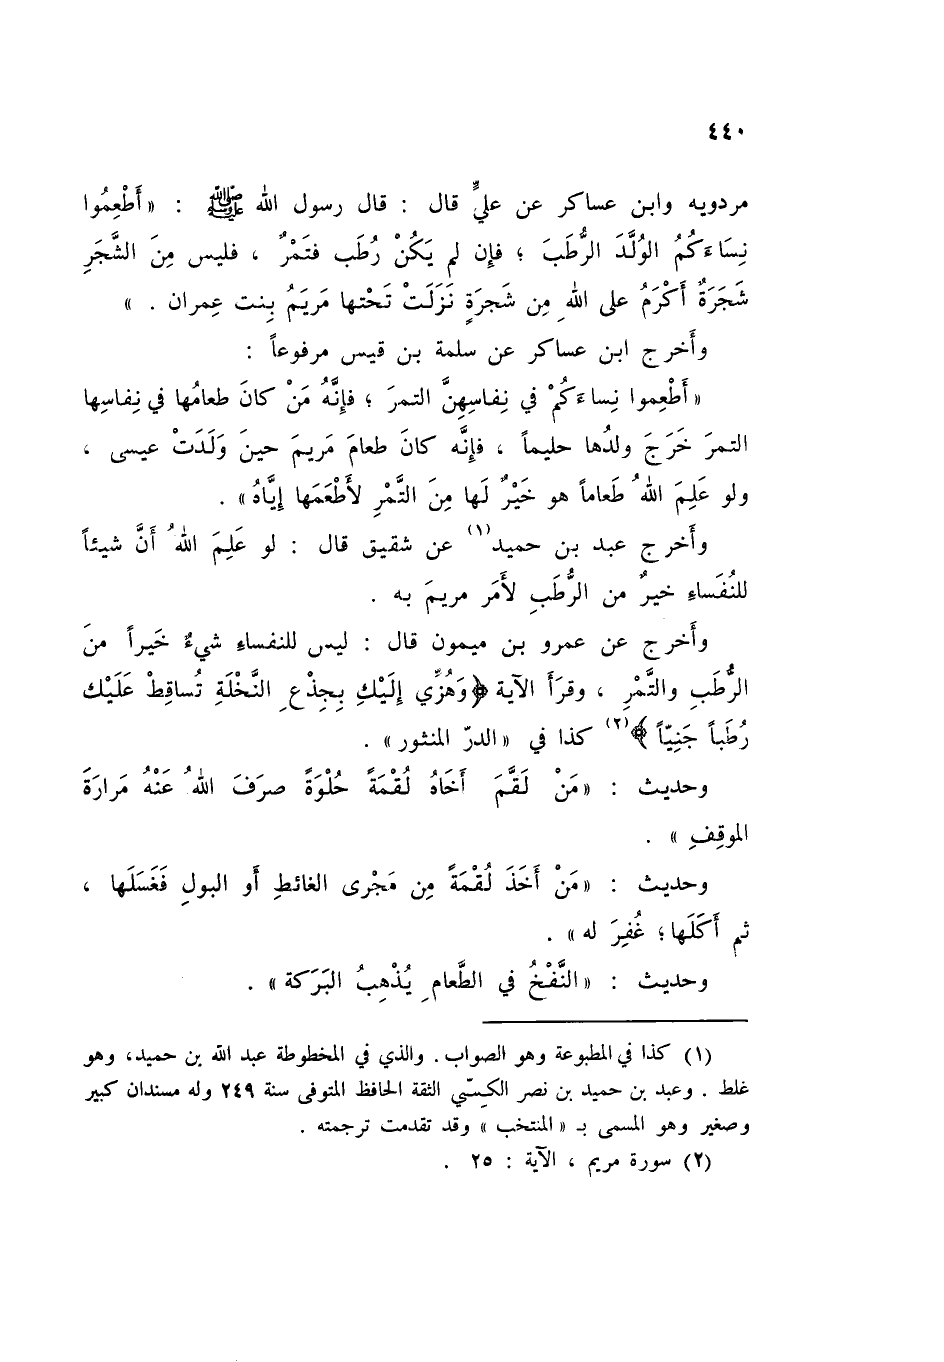 ٤٤٠
مردويه وابن عساكر عن عليٍّ قال : قال رسول الله ﷺ : «أَطْعِمُوا
نِسَاءَكُمُ الوُلَّدَ الرُّطَبَ ؛ فإن لم يَكُنْ رُطَب فتَمْرٌ ، فليس مِنَ الشَّجَرِ
شَجَرَةٌ أَكْرَمُ على اللهِ مِن شَجرَةٍ نَزَلَتْ تَحْتها مَريَمُ بِنت عِمران . »
وأَخرج ابن عساكر عن سلمة بن قيس مرفوعاً :
«أَطْعِموا نِساءَكُمْ في نِفاسِهِنَّ التمرَ ؛ فإِنَّهُ مَنْ كانَ طعامُها في نِفاسِها
التمرَ خَرَجَ ولدُها حليماً ، فإِنَّه كانَ طعامَ مَريمَ حينَ وَلَدَتْ عيسى ،
ولو عَلِمَ اللهُ طَعاماً هو خَيْرٌ لَها مِنَ التَّمْرِ لأَطْعَمَها إِيَّاهُ» .
وأَخرج عبد بن حميد(١) عن شقيق قال : لو عَلِمَ اللهُ أَنَّ شيئاً
للنُفَساءِ خيرٌ من الرُّطَبِ لأَمَر مريمَ به .
وأَخرج عن عمرو بن ميمون قال : ليس للنفساءِ شيءٌ خَيراً منَ
الرُّطَبِ والتَّمْرِ ، وقرَأَ الآية ﴿وَهُزِّي إِلَيْكِ بِجِذْعِ النَّخْلَةِ تُساقِطْ عَلَيْك
رُطَباً جَنِيّاً﴾(٢) كذا في «الدرّ المنثور» .
وحديث : «مَنْ لَقَّمَ أَخَاهُ لُقْمَةً حُلْوَةً صرَفَ اللهُ عَنْهُ مَرارَةَ
الموقِفِ» .
وحديث : «مَنْ أَخَذَ لُقْمَةً مِن مَجْرى الغائطِ أَو البولِ فَغَسَلَها ،
ثم أَكَلَها؛ غُفِرَ له» .
وحديث : «النَّفْخُ في الطَّعامِ يُذْهِبُ البَرَكة» .
(١) كذا في المطبوعة وهو الصواب. والذي في المخطوطة عبد الله بن حميد، وهو
غلط . وعبد بن حميد بن نصر الكِسّي الثقة الحافظ المتوفى سنة ٢٤٩ وله مسندان كبير
وصغير وهو المسمى بـ « المنتخب » وقد تقدمت ترجمته .
(٢) سورة مريم ، الآية : ٢٥ .